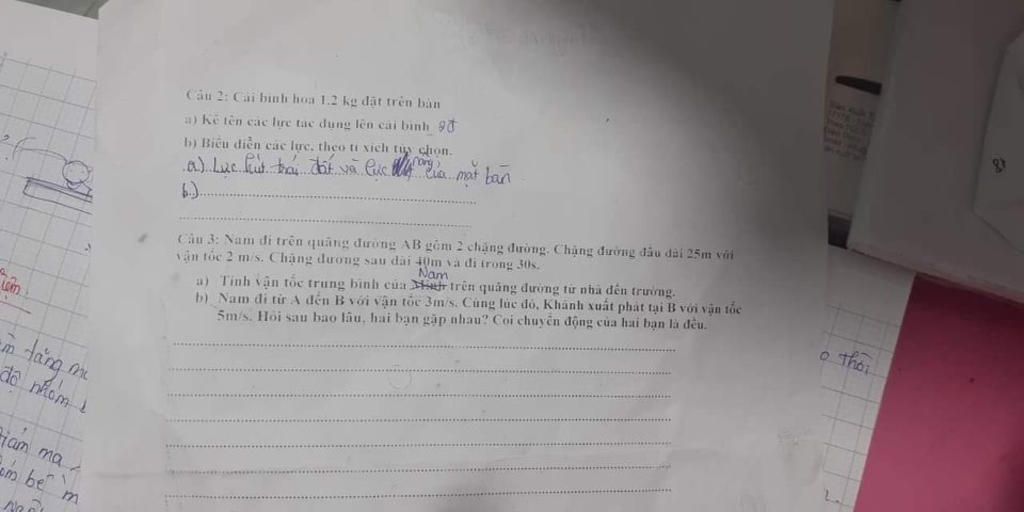 Câu 2: Cái bình hoa 1.2 kg đặt trên bàn
a) Kể tên các lực tác dụng lên cái bình
b) Biểu diễn các lực, theo tỉ xích tùy chọn.
a) Lực hút trái đất và lực nâng của mặt bàn
b)
Câu 3: Nam đi trên quãng đường AB gồm 2 chặng đường. Chặng đường đầu dài 25m với
vận tốc 2 m/s. Chặng đường sau dài 40m và đi trong 30s.
Nam
a) Tính vận tốc trung bình của trên quãng đường từ nhà đến trường.
b) Nam đi từ A đến B với vận tốc 3m/s. Cùng lúc đó, Khánh xuất phát tại B với vận tốc
5m/s. Hỏi sau bao lâu, hai bạn gặp nhau? Coi chuyển động của hai bạn là đều.
đăng
độ nhóm
giám